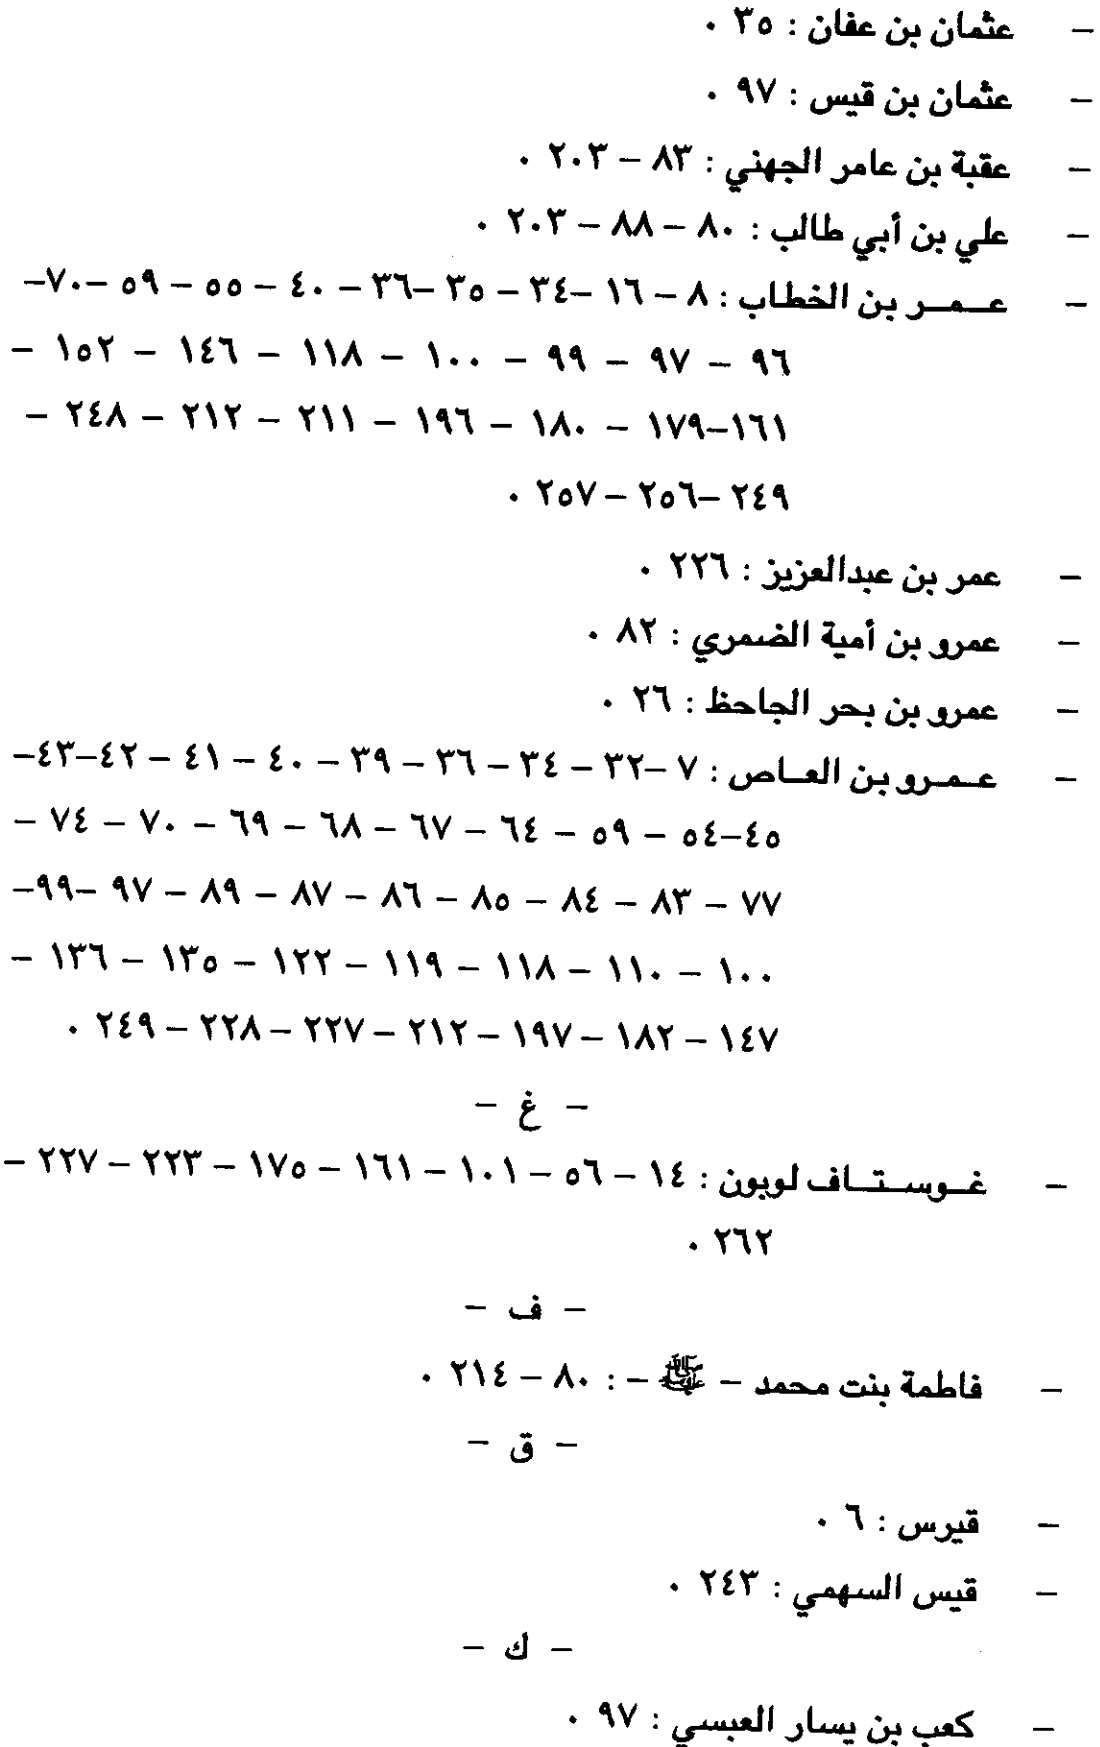 – عثمان بن عفان : ٣٥ .
– عثمان بن قيس : ٩٧ .
– عقبة بن عامر الجهني : ٨٣ – ٢٠٣ .
– علي بن أبي طالب : ٨٠ – ٨٨ – ٢٠٣ .
– عمر بن الخطاب : ٨ – ١٦ –٣٤ – ٣٥ –٣٦ – ٤٠ – ٥٥ – ٥٩ –٧٠–
٩٦ – ٩٧ – ٩٩ – ١٠٠ – ١١٨ – ١٤٦ – ١٥٢ –
١٦١–١٧٩ – ١٨٠ – ١٩٦ – ٢١١ – ٢١٢ – ٢٤٨ –
٢٤٩ –٢٥٦ – ٢٥٧ .
– عمر بن عبدالعزيز : ٢٢٦ .
– عمرو بن أمية الضمري : ٨٢ .
– عمرو بن بحر الجاحظ : ٢٦ .
– عمرو بن العاص : ٧ –٣٢ – ٣٤ – ٣٦ – ٣٩ – ٤٠ – ٤١ – ٤٢–٤٣–
٤٥–٥٤ – ٥٩ – ٦٤ – ٦٧ – ٦٨ – ٦٩ – ٧٠ – ٧٤ –
٧٧ – ٨٣ – ٨٤ – ٨٥ – ٨٦ – ٨٧ – ٨٩ – ٩٧ –٩٩–
١٠٠ – ١١٠ – ١١٨ – ١١٩ – ١٢٢ – ١٣٥ – ١٣٦ –
١٤٧ – ١٨٢ – ١٩٧ – ٢١٢ – ٢٢٧ – ٢٢٨ – ٢٤٩ .
– غ –
– غوستاف لوبون : ١٤ – ٥٦ – ١٠١ – ١٦١ – ١٧٥ – ٢٢٣ – ٢٢٧ –
٢٦٢ .
– ف –
– فاطمة بنت محمد – ﷺ – : ٨٠ – ٢١٤ .
– ق –
– قيرس : ٦ .
– قيس السهمي : ٢٤٣ .
– ك –
– كعب بن يسار العبسي : ٩٧ .